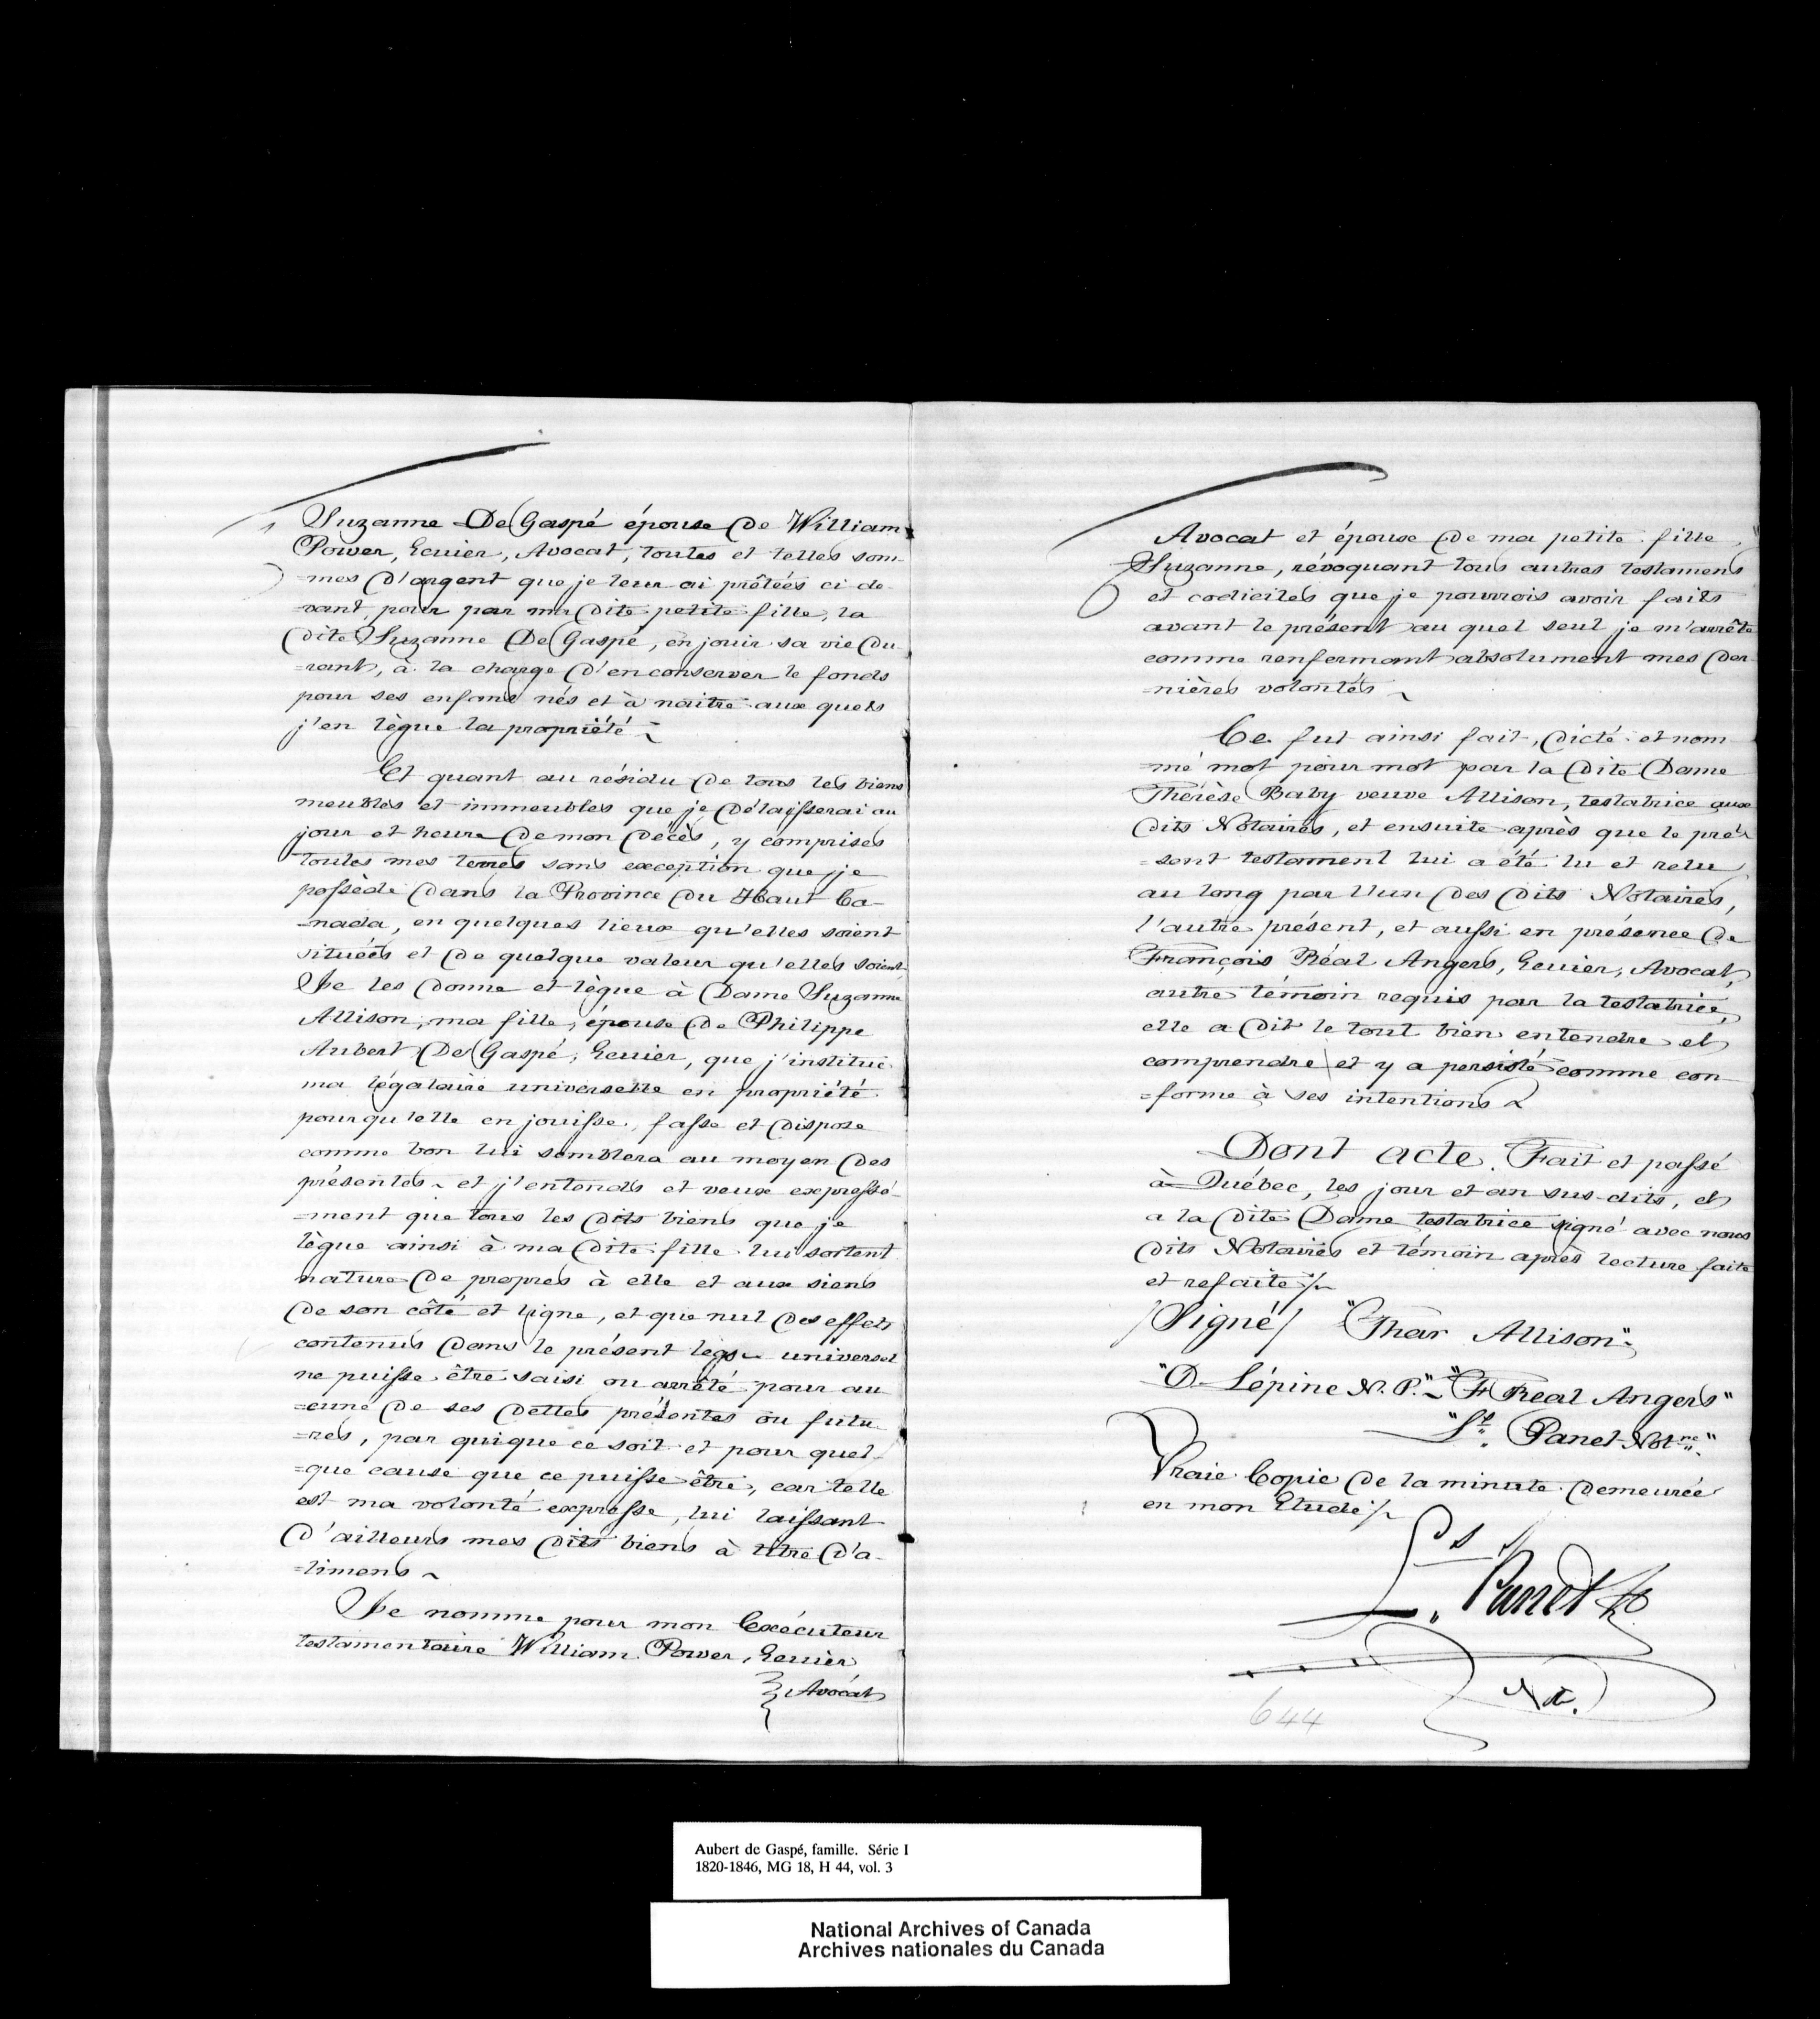 Suzanne De Gaspé épouse de William
Power, Ecuier, Avocat, toutes et telles som-
=mes d'argent que je leur ai prêtées ci de-
=vant, pour par ma dite petite fille, la
dite Suzanne De Gaspé, en jouir sa vie du-
=rant, à la charge d'en conserver le fonds
pour ses enfans nés et à naitre aux quels
j'en lègue la propriété ~
Et quant au résidu de tous les biens
meubles et immeubles que je délaisserai au
jour et heure de mon décès, y comprises
toutes mes terres sans exception que je
possède dans la Province du Haut Ca-
=nada, en quelques lieux qu'elles soient
situées et de quelque valeur qu'elles soient
Je les donne et lègue à Dame Suzanne
Allison, ma fille, épouse de Philippe
Aubert De Gaspé, Ecuier, que j'institue
ma légataire universelle en propriété
pour qu'elle en jouisse, fasse et dispose
comme bon lui semblera au moyen des
présentes ~ et j'entends et veux expressé-
=ment que tous les dits biens que je
lègue ainsi à ma dite fille lui sortent
nature de propres à elle et aux siens
de son côté et ligne, et que nul des effets
contenus dans le présent legs ~ universel
ne puisse être saisi ou arrêté pour au
=cune de ses dettes présentes ou futu-
=res, par qui que ce soit et pour quel-
=que cause que ce puisse être, car telle
est ma volonté expresse, lui laissant
d'ailleurs mes dits biens à titre d'a-
=limens ~
Je nomme pour mon Exécuteur
testamentaire William Power, Ecuier
Avocat
Avocat et épouse de ma petite fille
Suzanne, révoquant tous autres testamens
et codiciles que je pourrois avoir faits
avant le présent au quel seul je m'arrête
comme renfermant absolument mes der-
=nières volontés ~
Ce fut ainsi fait, dicté et nom-
=mé mot pour mot par la dite Dame
Thérèse Baby veuve Allison, testatrice aux
dits Notaires, et ensuite après que le pré-
=sent testament lui a été lu et relu
au long par l'un des dits Notaires,
l'autre présent, et aussi en présence de
François Réal Angers, Ecuier, Avocat,
autre témoin requis par la testatrice,
elle a dit le tout bien entendre et
comprendre et y a persisté comme con-
=forme à ses intentions
Dont acte. Fait et passé
à Québec, les jour et an sus-dits, et
a la dite Dame testatrice signé avec nous
dits Notaires et témoin après lecture faite
et refaite ./.
/Signé/ "Ther Allison"
"D. Lépine N. P." ~ "F Real Angers"
"Ls. Panet Notre."
Vraie Copie de la minute demeurée
en mon Etude ./.
Ls. Panet
Nt.
644
Aubert de Gaspé, famille. Série I
1820-1846, MG 18, H 44, vol. 3
National Archives of Canada
Archives nationales du Canada